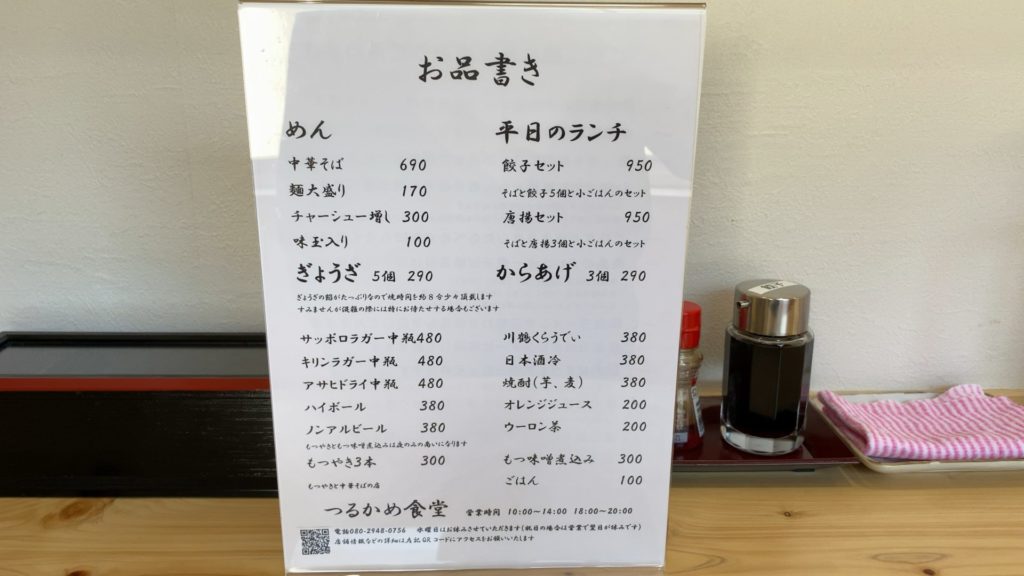 お品書き
めん
中華そば 690
麺大盛り 170
チャーシュー増し 300
味玉入り 100
ぎょうざ 5個 290
ぎょうざの餡がたっぷりなので焼時間を約8分少々頂戴します
すみませんが混雑の際には特にお待たせする場合もございます
平日のランチ
餃子セット 950
そばと餃子5個と小ごはんのセット
唐揚セット 950
そばと唐揚3個と小ごはんのセット
からあげ 3個 290
サッポロラガー中瓶 480
キリンラガー中瓶 480
アサヒドライ中瓶 480
ハイボール 380
ノンアルビール 380
もつやきともつ味噌煮込みは夜のみの商いになります
もつやき3本 300
川鶴くらうでぃ 380
日本酒冷 380
焼酎(芋、麦) 380
オレンジジュース 200
ウーロン茶 200
もつ味噌煮込み 300
ごはん 100
もつやきと中華そばの店
つるかめ食堂 営業時間 10:00~14:00 18:00~20:00
電話080-2948-0756 水曜日はお休みさせていただきます(祝日の場合は営業で翌日が休みです)
店舗情報などの詳細は左記QRコードにアクセスをお願いいたします